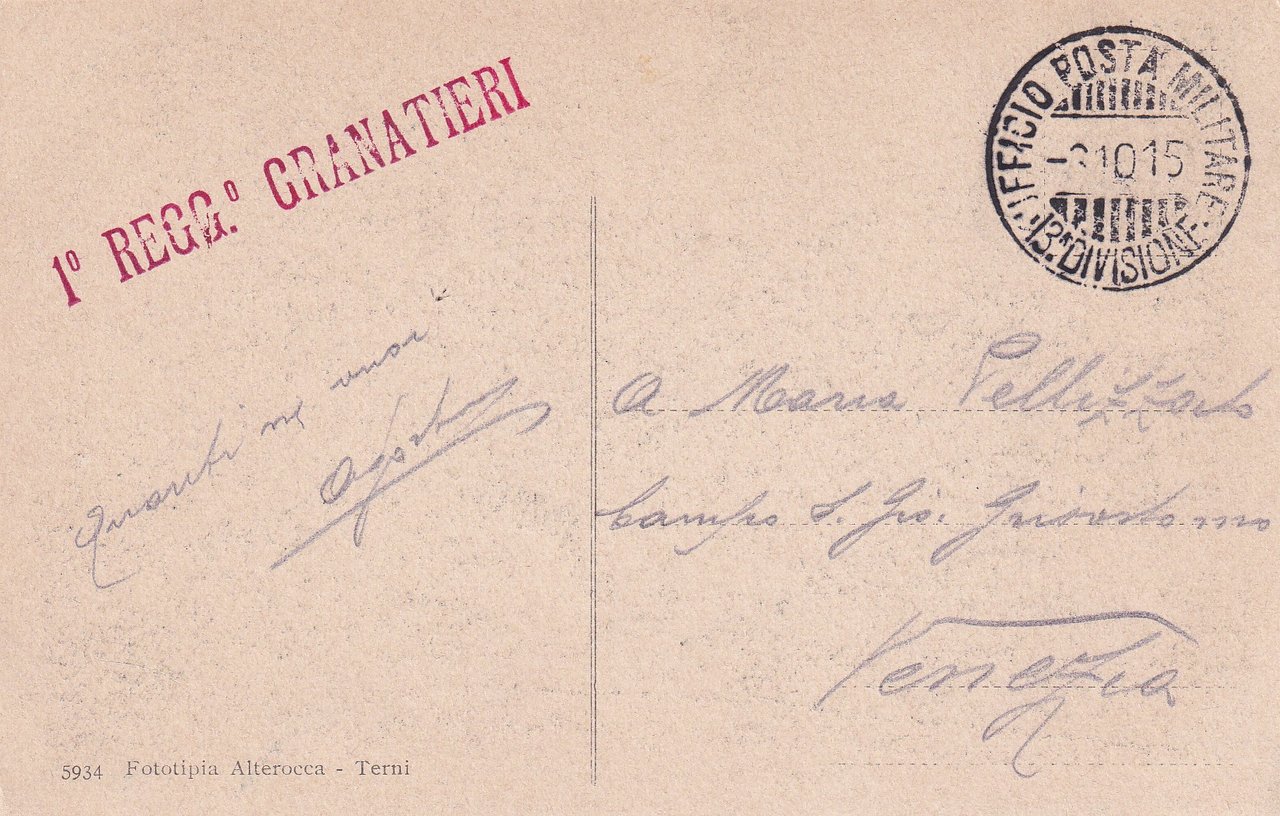 1º REGG.º GRANATIERI
UFFICIO POSTA MILITARE
10 15
13ª DIVISIONE
Quanti ne vuoi
A Maria Pellizzato
Campo S. Gio. Grisostomo
Venezia
5934 Fototipia Alterocca - Terni